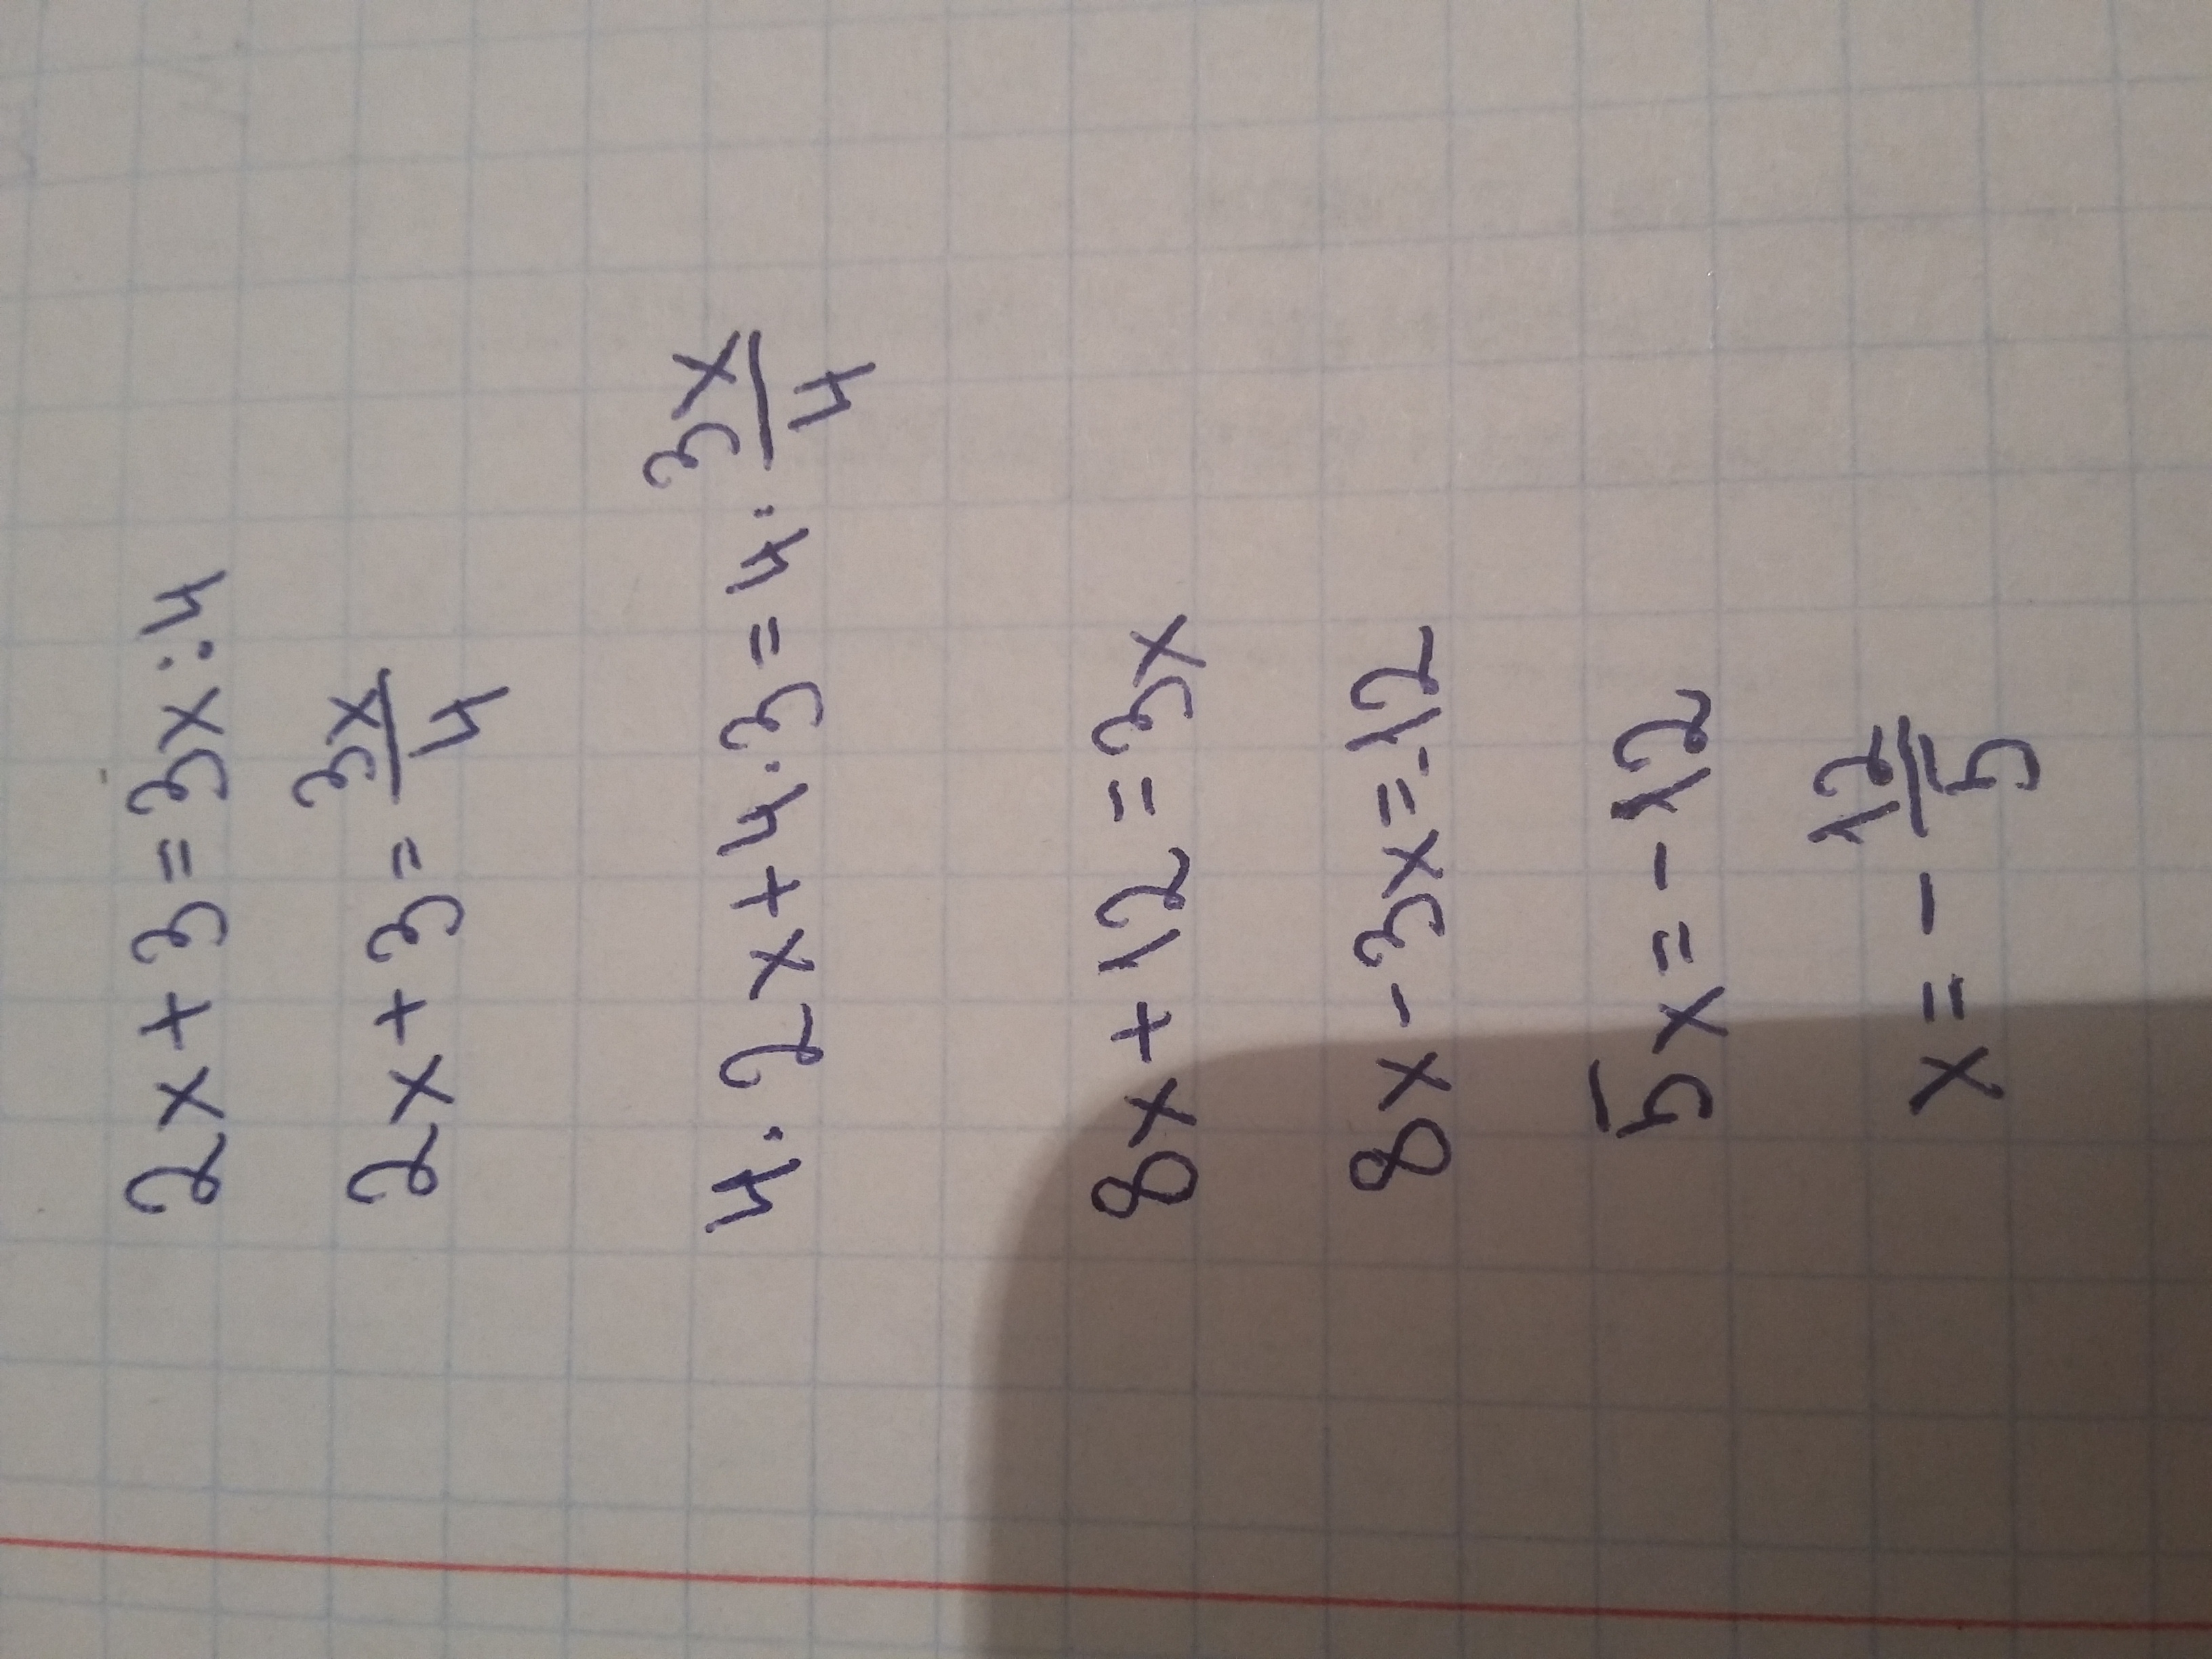 2x + 3 = 3x : 4
2x + 3 = 3x/4
4 · 2x + 4 · 3 = 4 · 3x/4
8x + 12 = 3x
8x - 3x = -12
5x = - 12
x = - 12/5